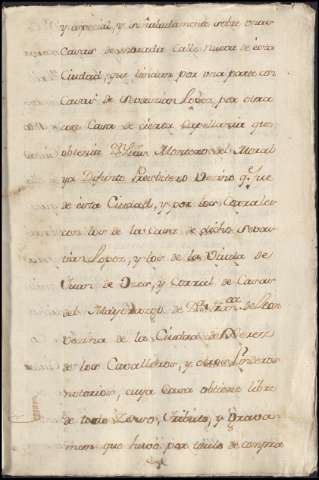 y especial, y señaladamente sobre unas
Casas de morada calle nueva de ésta
Ciudad, que lindan por una parte con
Casas de Sevastian Lopez, por otra
con Casa de cierta Capellania que
obtenia Dn. Luis Montoro del Moral
ya Difunto Presbitero Vecino q. fue
de ésta Ciudad, y por los Corrales
con los de las Casas de dicho Sevas-
tian Lopez, y los de la Viuda de
Juan de Osea, y Corral de Casas
del Mayorazgo de Dn. Franco. de Leon
Vecino de la Ciudad de Xerez
de los Cavalleros, y otros Linderos
notorios, cuya Casa obtiene libre
de todo Zenso, Tributo, y Grava-
men que huvo por titulo de compra